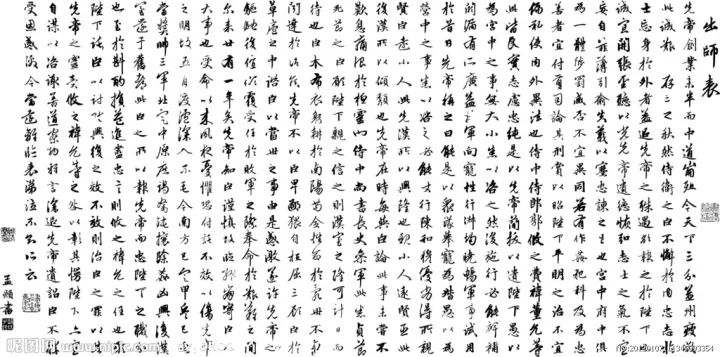 出師表
先帝創業未半而中道崩殂今天下三分益州疲敝
此誠危急存亡之秋也然侍衛之臣不懈於內忠志
士忘身於外者蓋追先帝之殊遇欲報之於陛下也
誠宜開張聖聽以光先帝遺德恢弘志士之氣不宜
妄自菲薄引喻失義以塞忠諫之路也宮中府中俱
為一體陟罰臧否不宜異同若有作姦犯科及為忠
善者宜付有司論其刑賞以昭陛下平明之治不宜
偏私使內外異法也侍中侍郎郭攸之費禕董允等
此皆良實志慮忠純是以先帝簡拔以遺陛下愚以
為宮中之事無大小悉以咨之然後施行必能裨補
闕漏有所廣益將軍向寵性行淑均曉暢軍事試用
於昔日先帝稱之曰能是以眾議舉寵為督愚以為
營中之事悉以咨之必能使行陣和穆優劣得所親
賢臣遠小人此先漢所以興隆也親小人遠賢臣此
後漢所以傾頹也先帝在時每與臣論此事未嘗不
歎息痛恨於桓靈也侍中尚書長史參軍此悉貞亮
死節之臣也願陛下親之信之則漢室之隆可計日而
待也臣本布衣躬耕於南陽苟全性命於亂世不求
聞達於諸侯先帝不以臣卑鄙猥自枉屈三顧臣於
草廬之中諮臣以當世之事由是感激遂許先帝以驅
馳後值傾覆受任於敗軍之際奉命於危難之間
爾來廿有一年矣先帝知臣謹慎故臨崩寄臣以
大事也受命以來夙夜憂懼恐付託不效以傷先帝
之明故五月渡瀘深入不毛今南方已定甲兵已足
當獎帥三軍北定中原庶竭駑鈍攘除姦凶興復漢
室還于舊都此臣之所以報先帝而忠陛下之職分
也至於斟酌損益進盡忠言則攸之禕允之任也願
陛下託臣以討賊興復之效不效則治臣之罪以告
先帝之靈責攸之禕允等之咎以彰其慢陛下亦宜
自謀以咨諏善道察納雅言深追先帝遺詔臣不勝
受恩感激今當遠離臨表涕泣不知所云
孟頫書